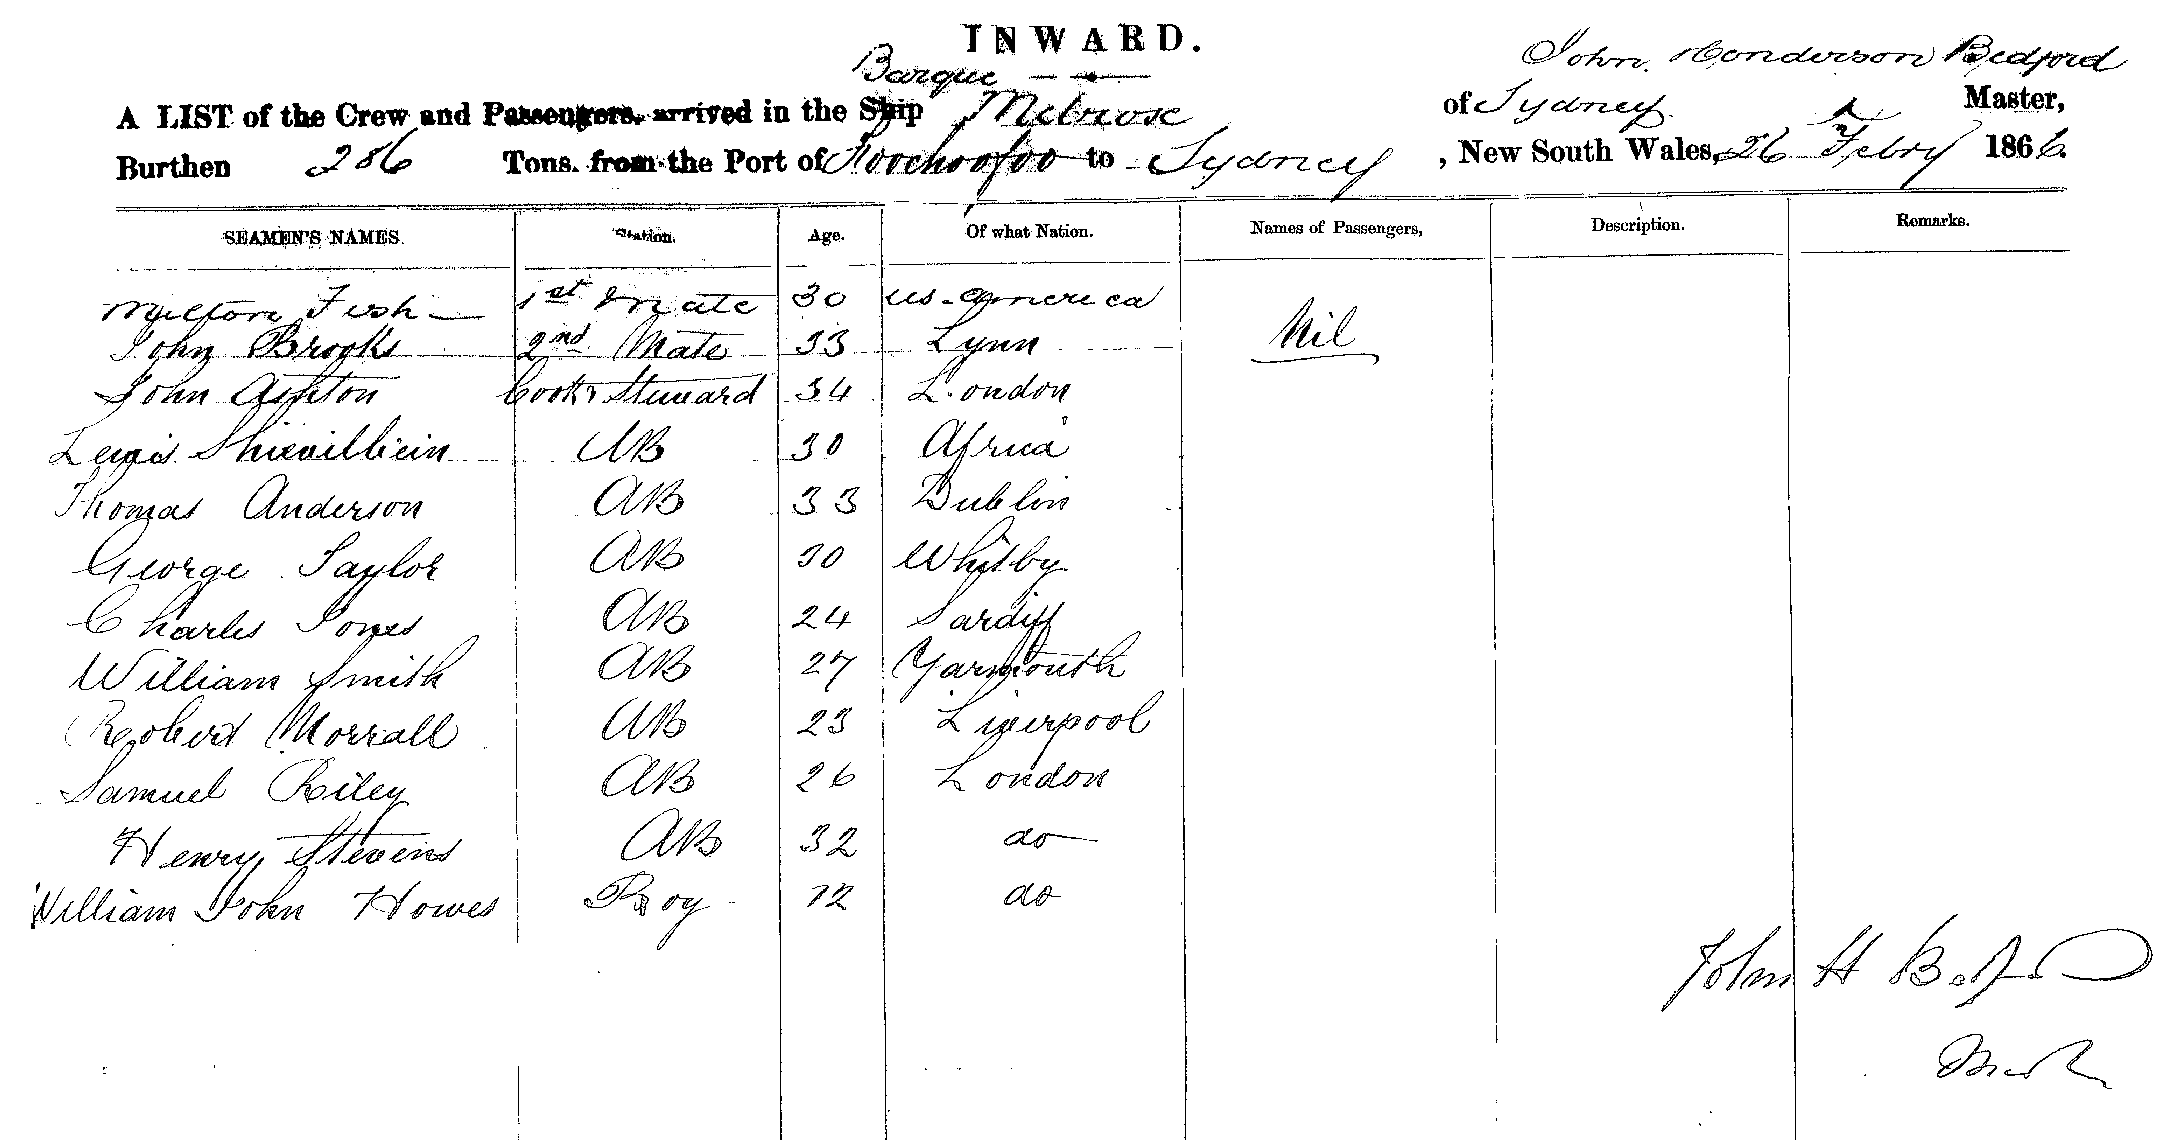 INWARD.
Barque
John Henderson Bedford
A LIST of the Crew and Passengers, arrived in the Ship Melrose of Sydney Master,
Burthen 286 Tons. from the Port of Foochoofoo to Sydney, New South Wales, 26 Febry 1866.
SEAMEN'S NAMES. Station. Age. Of what Nation. Names of Passengers, Description. Remarks.
Milton Fish 1st Mate 30 US-America
Nil
John Brooks 2nd Mate 33 Lynn
John Ashton Cook & Steward 34 London
Lewis AB 30 Africa
Thomas Anderson AB 33 Dublin
George Taylor AB 30 Whitby
Charles Jones AB 24 Cardiff
William Smith AB 27 Yarmouth
Robert Morrall AB 23 Liverpool
Samuel Riley AB 26 London
Henry Stevens AB 32 do
William John Howes Boy 12 do
John H Bedford